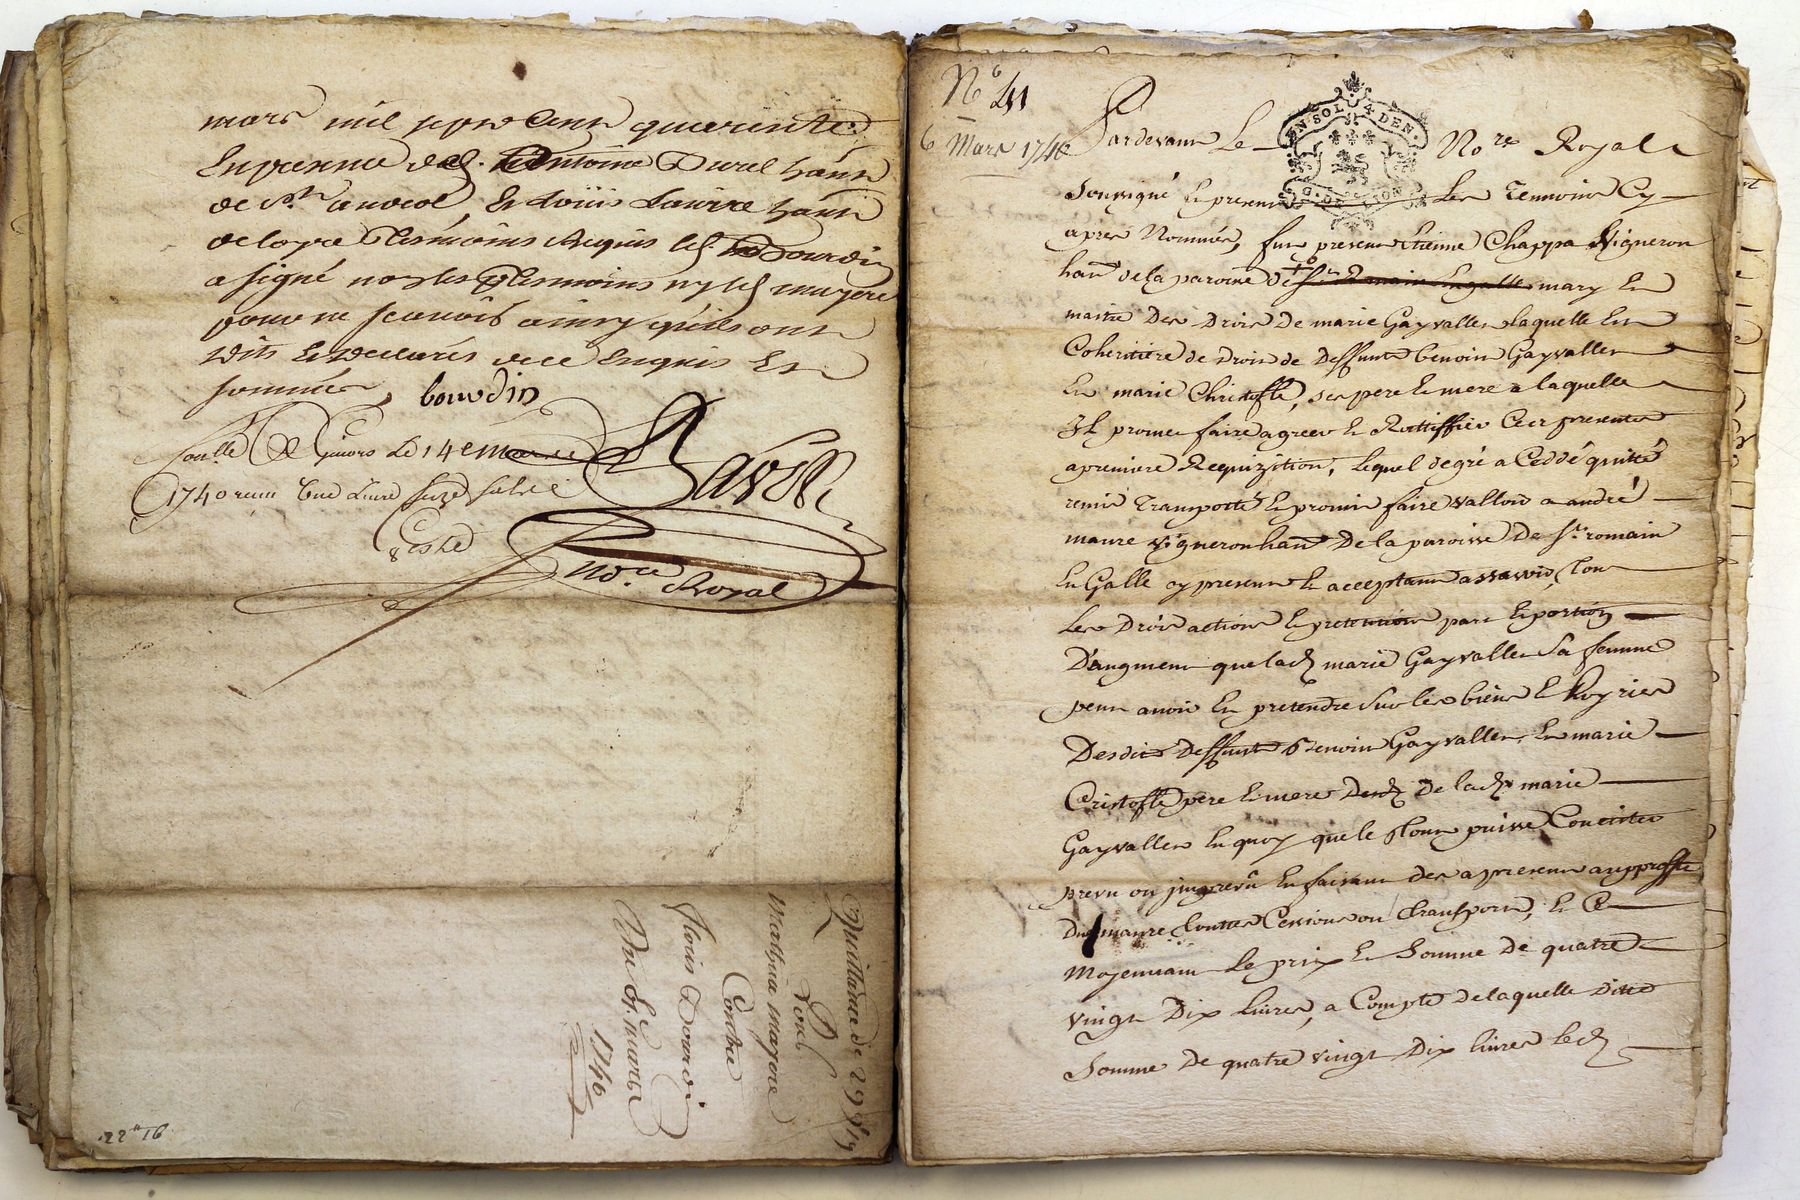 mars mil sept cent quarente
En presence de s. Antoine Durel hant
de St andeol, Et Loüis Lauvre hant
de loyre tesmoins Requis led Bourdin
a signé non les tesmoins ny led mayere
pour ne scavoir ainsy quils ont
dits Et declarés de ce Enquis Et
sommés bourdin
Conllé A Givors Le 14e mars
1740 recu une Livre Seize sols
Nore Royal
Quittance de 29 lt 19
Pour
Mathieu mayere
Contre
Bourdin
1740
22 " 16
No 41
6 Mars 1740
EN. SOL 4 DEN.
G. DE LION
Pardevant Le Nore Royal
Soussigné En presence Les Temoins Cy
après Nommés, fut present Etienne Chappa Vigneron
hant de la paroisse de mary Et
maitre Des Droits De marie Gayvallet laquelle Est
Coheritiere de Droit de Deffunts benoit Gayvallet
Et marie Christofle, ses pere Et mere a laquelle
Il promet faire agreer Et Rattiffier Ces presentes
a premiere Requizition, Lequel de gré a Ceddé quitté
remis Transporté Et promis faire valloir a andré
maure vigneron hant De la paroisse De St romain
En Galle cy present Et acceptant assavoir, Tous
Les Droits actions Et pretentions part Et portion
D'augment que lad marie Gayvallet Sa femme
peut avoir Et pretendre Sur les biens Et hoyries
Desdits Deffunts Benoit Gayvallet, Et marie
Cristofle pere Et mere De lad marie
Gayvallet En quoy que le tout puisse Concister
prevu ou jmprevû En faisant des a present au proffit
Dud maure Touttes Cessions ou Transports, Et Ce
Moyennant Le prix Et Somme De quatre
vingt Dix Livres, a Compte de laquelle Ditte
Somme De quatre vingt Dix livres Led